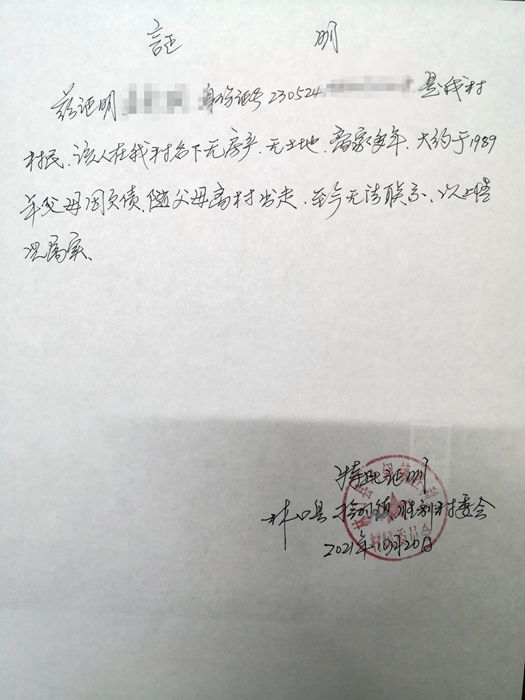 证 明
兹证明 身份证号230524 是我村
村民、该人在我村名下无房产、无土地、离家多年、大约于1989
年父母因负债、随父母离村出走、至今无法联系、以上情
况属实、
特此证明
林口县 镇胜利村委会
2021年 月20日